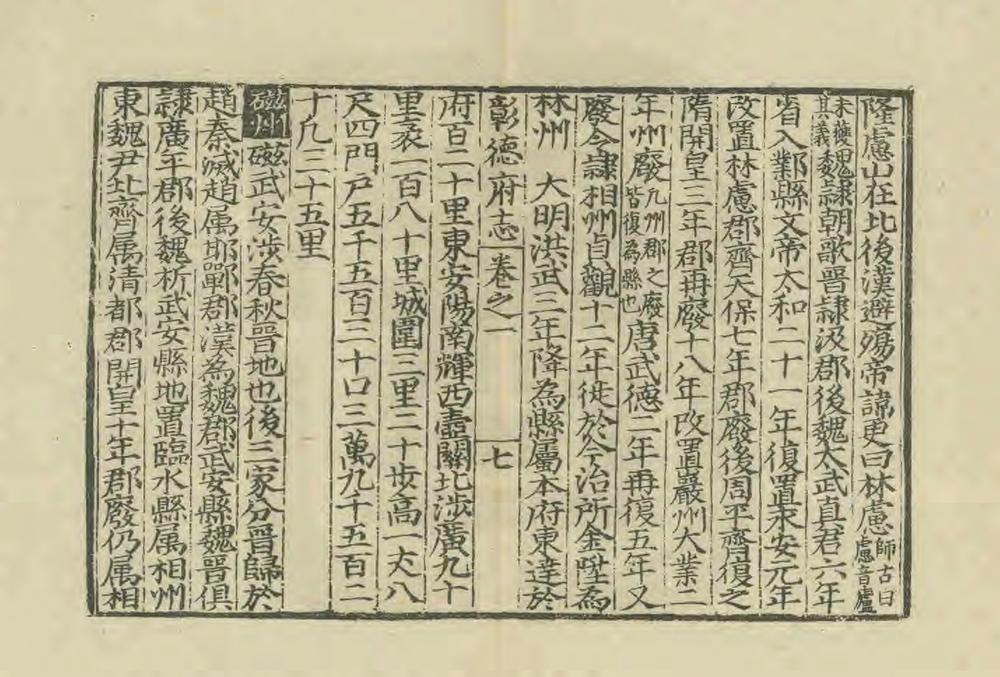 隆慮山在北後漢避殤帝諱更曰林慮師古曰慮音廬
未護其義魏隷朝歌晉隷汲郡後魏太武真君六年
省入鄴縣文帝太和二十一年復置永安元年
改置林慮郡齊天保七年郡廢後周平齊復之
隋開皇三年郡再廢十八年改置巖州大業二
年州廢凡州郡之廢皆復為縣也唐武德二年再復五年又
廢今隷相州貞觀十二年徙於今治所金陞為
林州 大明洪武三年降為縣屬本府東達於
彰德府志 卷之一 七
府百二十里東安陽南輝西壺關北涉廣九十
里袤一百八十里城圍三里二十步高一丈八
尺四門戶五千五百三十口三萬九千五百二
十凡三十五里
磁州磁武安涉春秋晉地也後三家分晉歸於
趙秦滅趙属邯鄲郡漢為魏郡武安縣魏晉俱
隷廣平郡後魏析武安縣地置臨水縣属相州
東魏尹北齊属清都郡開皇十年郡廢仍属相